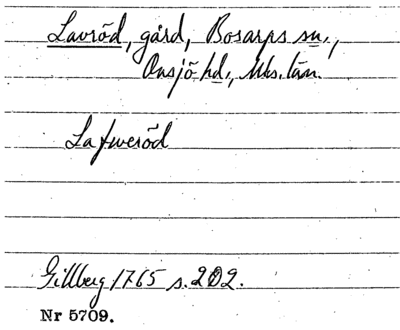 Lavröd, gård, Bosarps sn.,
Onsjö hd., Mks. län.
Lafweröd
Gillberg 1765 s. 202.
Nr 5709.